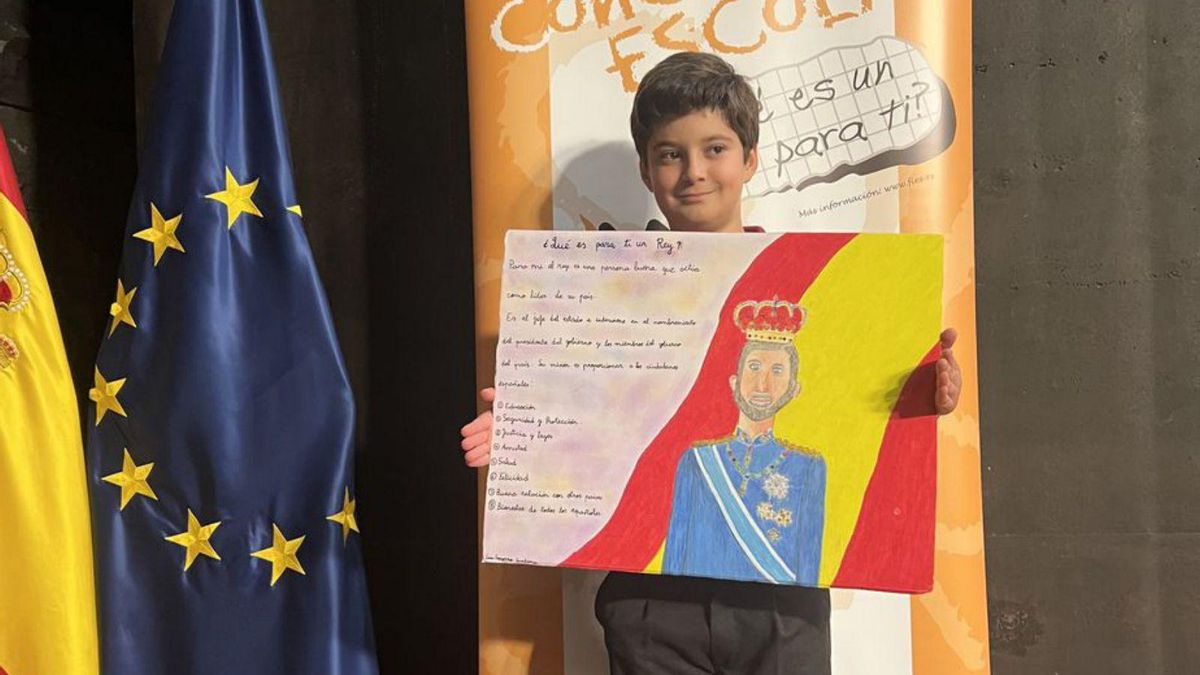 CONC
ESCOL
é es un
para ti?
Más información: www.fies.es
¿Qué es para ti un Rey?
Para mi el rey es una persona buena que actúa
como líder de su país.
Es el jefe del estado e interviene en el nombramiento
del presidente del gobierno y los miembros del gobierno
del país. Su mision es proporcionar a los ciudadanos
españoles:
① Educación
② Seguridad y Protección
③ Justicia y leyes
④ Amistad
⑤ Salud
⑥ Felicidad
⑦ Buena relación con otros países
⑧ Bienestar de todos los españoles